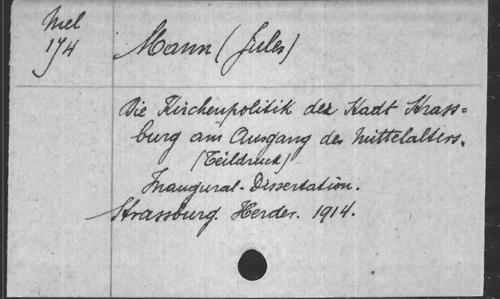 Mel
174
Mann (Jules)
Die Kirchenpolitik der Stadt Strass=
burg am Ausgang des Mittelalters.
(Teildruck)
Inaugural-Dissertation.
Strassburg. Herder. 1914.